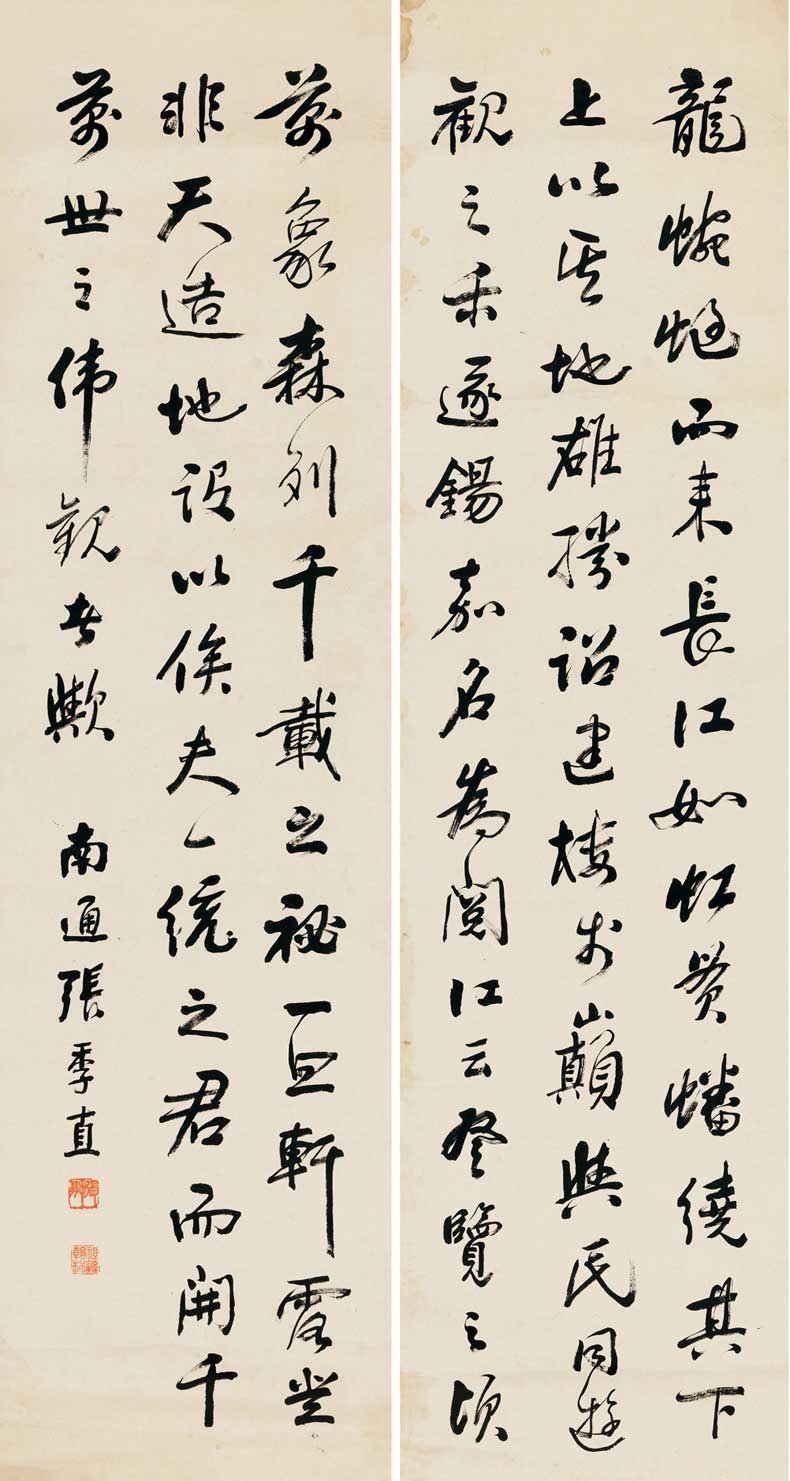 龍蜿蜒而来長江如虹貫蟠繞其下
上以其地雄勝詔建樓於巔與民同遊
觀之樂遂錫嘉名為閱江云登覽之頃
萬象森列千載之祕一旦軒露豈
非天造地設以俟夫一統之君而開千
萬世之偉觀者歟
南通張季直